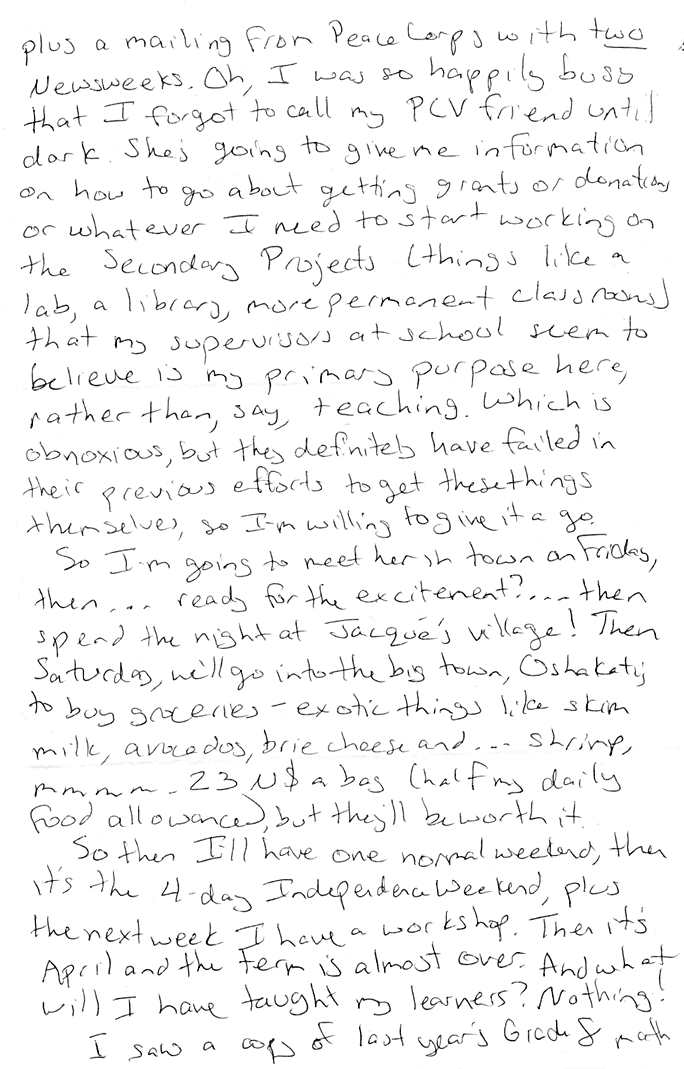 plus a mailing from Peace Corps with two
Newsweeks. Oh, I was so happily busy
that I forgot to call my PCV friend until
dark. She's going to give me information
on how to go about getting grants or donations
or whatever I need to start working on
the Secondary Projects (things like a
lab, a library, more permanent classrooms)
that my supervisors at school seem to
believe is my primary purpose here,
rather than, say, teaching. Which is
obnoxious, but they definitely have failed in
their previous efforts to get these things
themselves, so I'm willing to give it a go.
So I'm going to meet her in town on Friday,
then... ready for the excitement?... then
spend the night at Jacque's village! Then
Saturday, we'll go into the big town, Oshakati,
to buy groceries - exotic things like skim
milk, avocados, brie cheese and... shrimp,
mmmm. 23 N$ a bag (half my daily
food allowance), but they'll be worth it.
So then I'll have one normal weekend, then
it's the 4-day Independence Weekend, plus
the next week I have a workshop. Then it's
April and the term is almost over. And what
will I have taught my learners? Nothing!
I saw a copy of last year's Grade 8 math